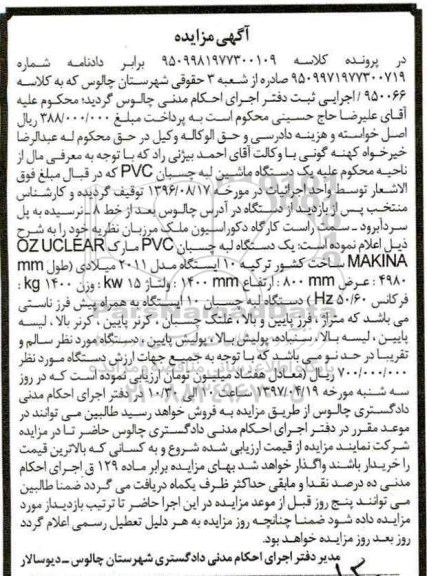 آگهی مزایده
در پرونده کلاسه ۹۵۰۹۹۸۱۹۷۷۳۰۰۱۰۹ برابر دادنامه شماره
۹۵۰۹۹۷۱۹۷۷۳۰۰۷۱۹ صادره از شعبه ۳ حقوقی شهرستان چالوس که به کلاسه
۹۵۰۰۶۶ / اجرایی ثبت دفتر اجرای احکام مدنی چالوس گردید؛ محکوم علیه
آقای علیرضا حاج حسینی محکوم است به پرداخت مبلغ ۳۸۸/۰۰۰/۰۰۰ ریال
اصل خواسته و هزینه دادرسی و حق الوکاله وکیل در حق محکوم له عبدالرضا
خیرخواه کهنه گونی با وکالت آقای احمد بیژنی راد که با توجه به معرفی مال از
ناحیه محکوم علیه یک دستگاه ماشین لبه چسبان PVC که در قبال مبلغ فوق
الاشعار توسط واحد اجرائیات در مورخه ۱۳۹۶/۰۸/۱۷ توقیف گردیده و کارشناس
منتخب پس از بازدید از دستگاه در آدرس چالوس بعد از خط ۸ـ نرسیده به پل
سردآبرود ـ سمت راست کارگاه دکوراسیون ملک مرزبان نظریه خود را به شرح
ذیل اعلام نموده است: یک دستگاه لبه چسبان PVC مارک OZ UCLEAR
MAKINA ساخت کشور ترکیه ۱۰ ایستگاه مدل ۲۰۱۱ میلادی (طول mm
۴۹۸۰ : عرض mm ۸۰۰ : ارتفاع mm ۱۴۰۰ : ولتاژ kw ۱۵ : وزن ۱۴۰۰ kg :
فرکانس ۵۰/۶۰ Hz ) دستگاه لبه چسبان ۱۰ ایستگاه به همراه پیش فرز ناستی
می باشد که متراژ ، فرز پایین و بالا ، غلتک چسبان ، کرنر پایین ، کرنر بالا ، لیسه
پایین ، لیسه بالا، سنباده، پولیش بالا ، پولیش پایین ، دستگاه مورد نظر سالم و
تقریبا در حد نو می باشد که با توجه به جمیع جهات ارزش دستگاه مورد نظر
۷۰۰/۰۰۰/۰۰۰ ریال (معادل هفتاد میلیون تومان ارزیابی نموده است که در روز
سه شنبه مورخه ۱۳۹۷/۰۴/۱۹ ساعت ۱۰ الی ۱۰/۳۰ در دفتر اجرای احکام مدنی
دادگستری چالوس از طریق مزایده به فروش خواهد رسید طالبین می توانند در
موعد مقرر در دفتر اجرای احکام مدنی دادگستری چالوس حاضر تا در مزایده
شرکت نمایند مزایده از قیمت ارزیابی شده شروع و به کسانی که بالاترین قیمت
را خریدار باشند واگذار خواهد شد بهای مزایده برابر ماده ۱۲۹ ق اجرای احکام
مدنی ده درصد نقدا و مابقی حداکثر ظرف یکماه دریافت می گردد ضمنا طالبین
می توانند پنج روز قبل از موعد مزایده در این اجرا حاضر تا ترتیب بازدید از مورد
مزایده داده شود ضمنا چنانچه روز مزایده به هر دلیل تعطیل رسمی اعلام گردد
روز بعد روز مزایده خواهد بود.
مدیر دفتر اجرای احکام مدنی دادگستری شهرستان چالوس ـ دیوسالار